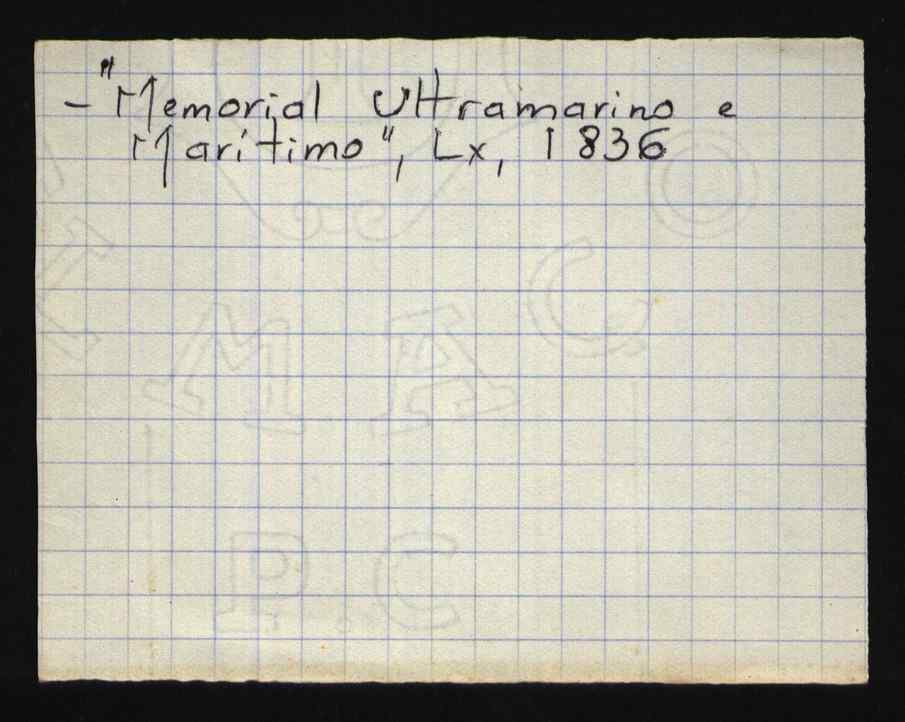 - "Memorial Ultramarino e
Marítimo", Lx, 1836